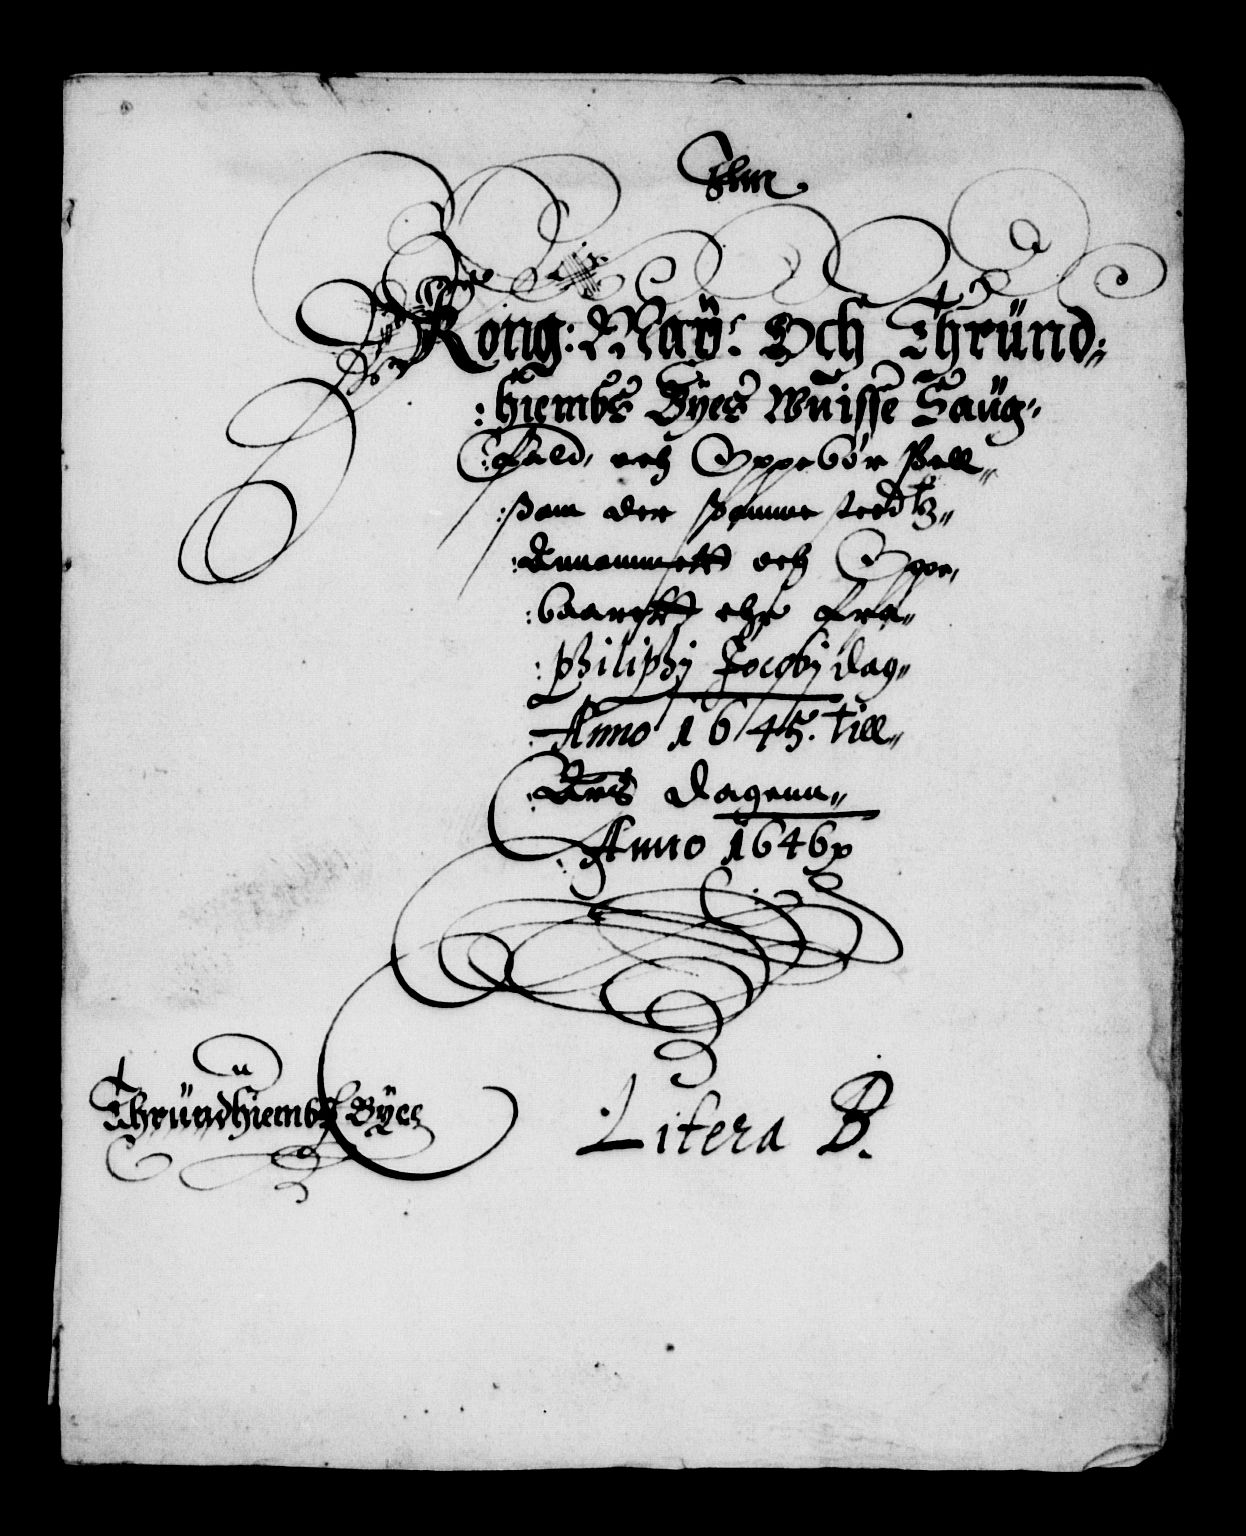 Kong: Maÿ: Och Thründ:
:hiembs Byes Wüisse Saüg-
:fald, och Oppebör Sell
:som der samme stedtz
:Annammett och Oppe,
:baarett ehr fra
:Philiphj Jacobj dag
:Anno 1645. till
:Års dagenn
:Anno 1646
Thründhiembs Bÿes
Litera B.